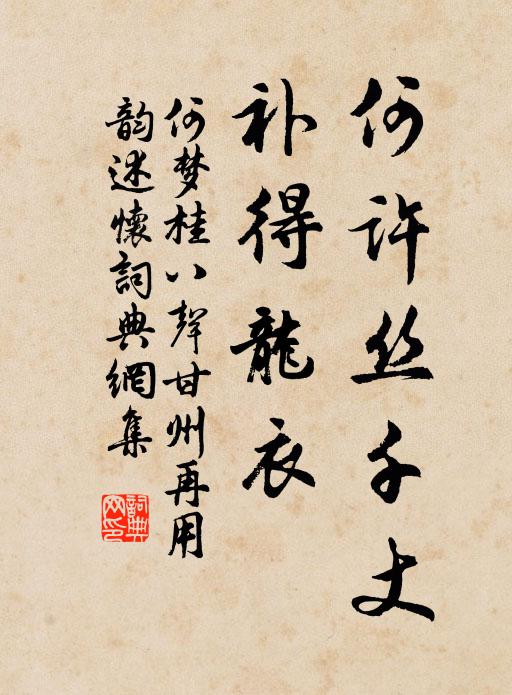 何许丝千丈
补得龍衣
何梦桂八聲甘州再用
韵述懷詞典網集
詞典网印